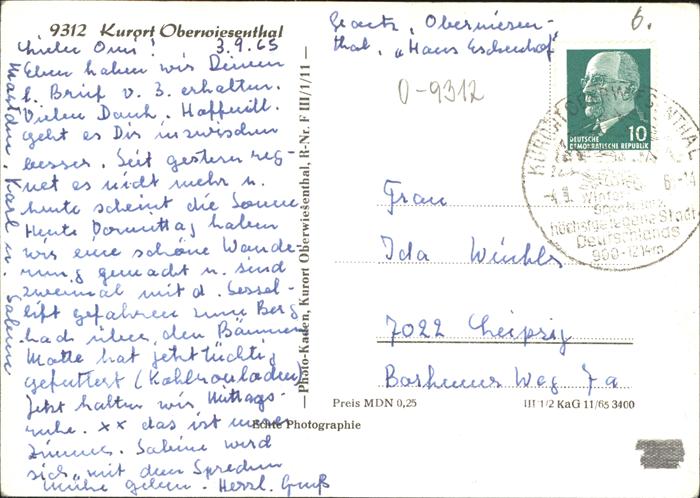 9312 Kurort Oberwiesenthal
3.9.65
Liebe Omi!
Eben haben wir Deinen
l. Brief v. 3. erhalten.
Vielen Dank. Hoffentl.
geht es Dir inzwischen
besser. Seit gestern reg-
net es nicht mehr u.
heute scheint die Sonne
Heute Vormittag haben
wir eine schöne Wande-
rung gemacht u. sind
zweimal mit d. Sessel-
lift gefahren zum Berg
hoch über den Bäumen
hat jetzt tüchtig
gefuttert (Kohlrouladen)
Jetzt halten wir Mittags-
ruhe. xx das ist unser
Zimmer. Sabine wird
sich mit dem
Mühe geben. Herzl. Gruß
Karl u. Sabine
Photo-Kaden, Kurort Oberwiesenthal, R-Nr. F III/1/11
Echte Photographie
Oberwiesen-
thal, „Haus Eschenhof"
6.
O-9312
10
DEUTSCHE
DEMOKRATISCHE REPUBLIK
KURORT OBERWIESENTHAL
Winter
höchstgelegene Stadt
Deutschlands
900-1214m
Frau
Ida
7022 Leipzig
Weg 7a
Preis MDN 0,25
III 1/2 KaG 11/65 3400